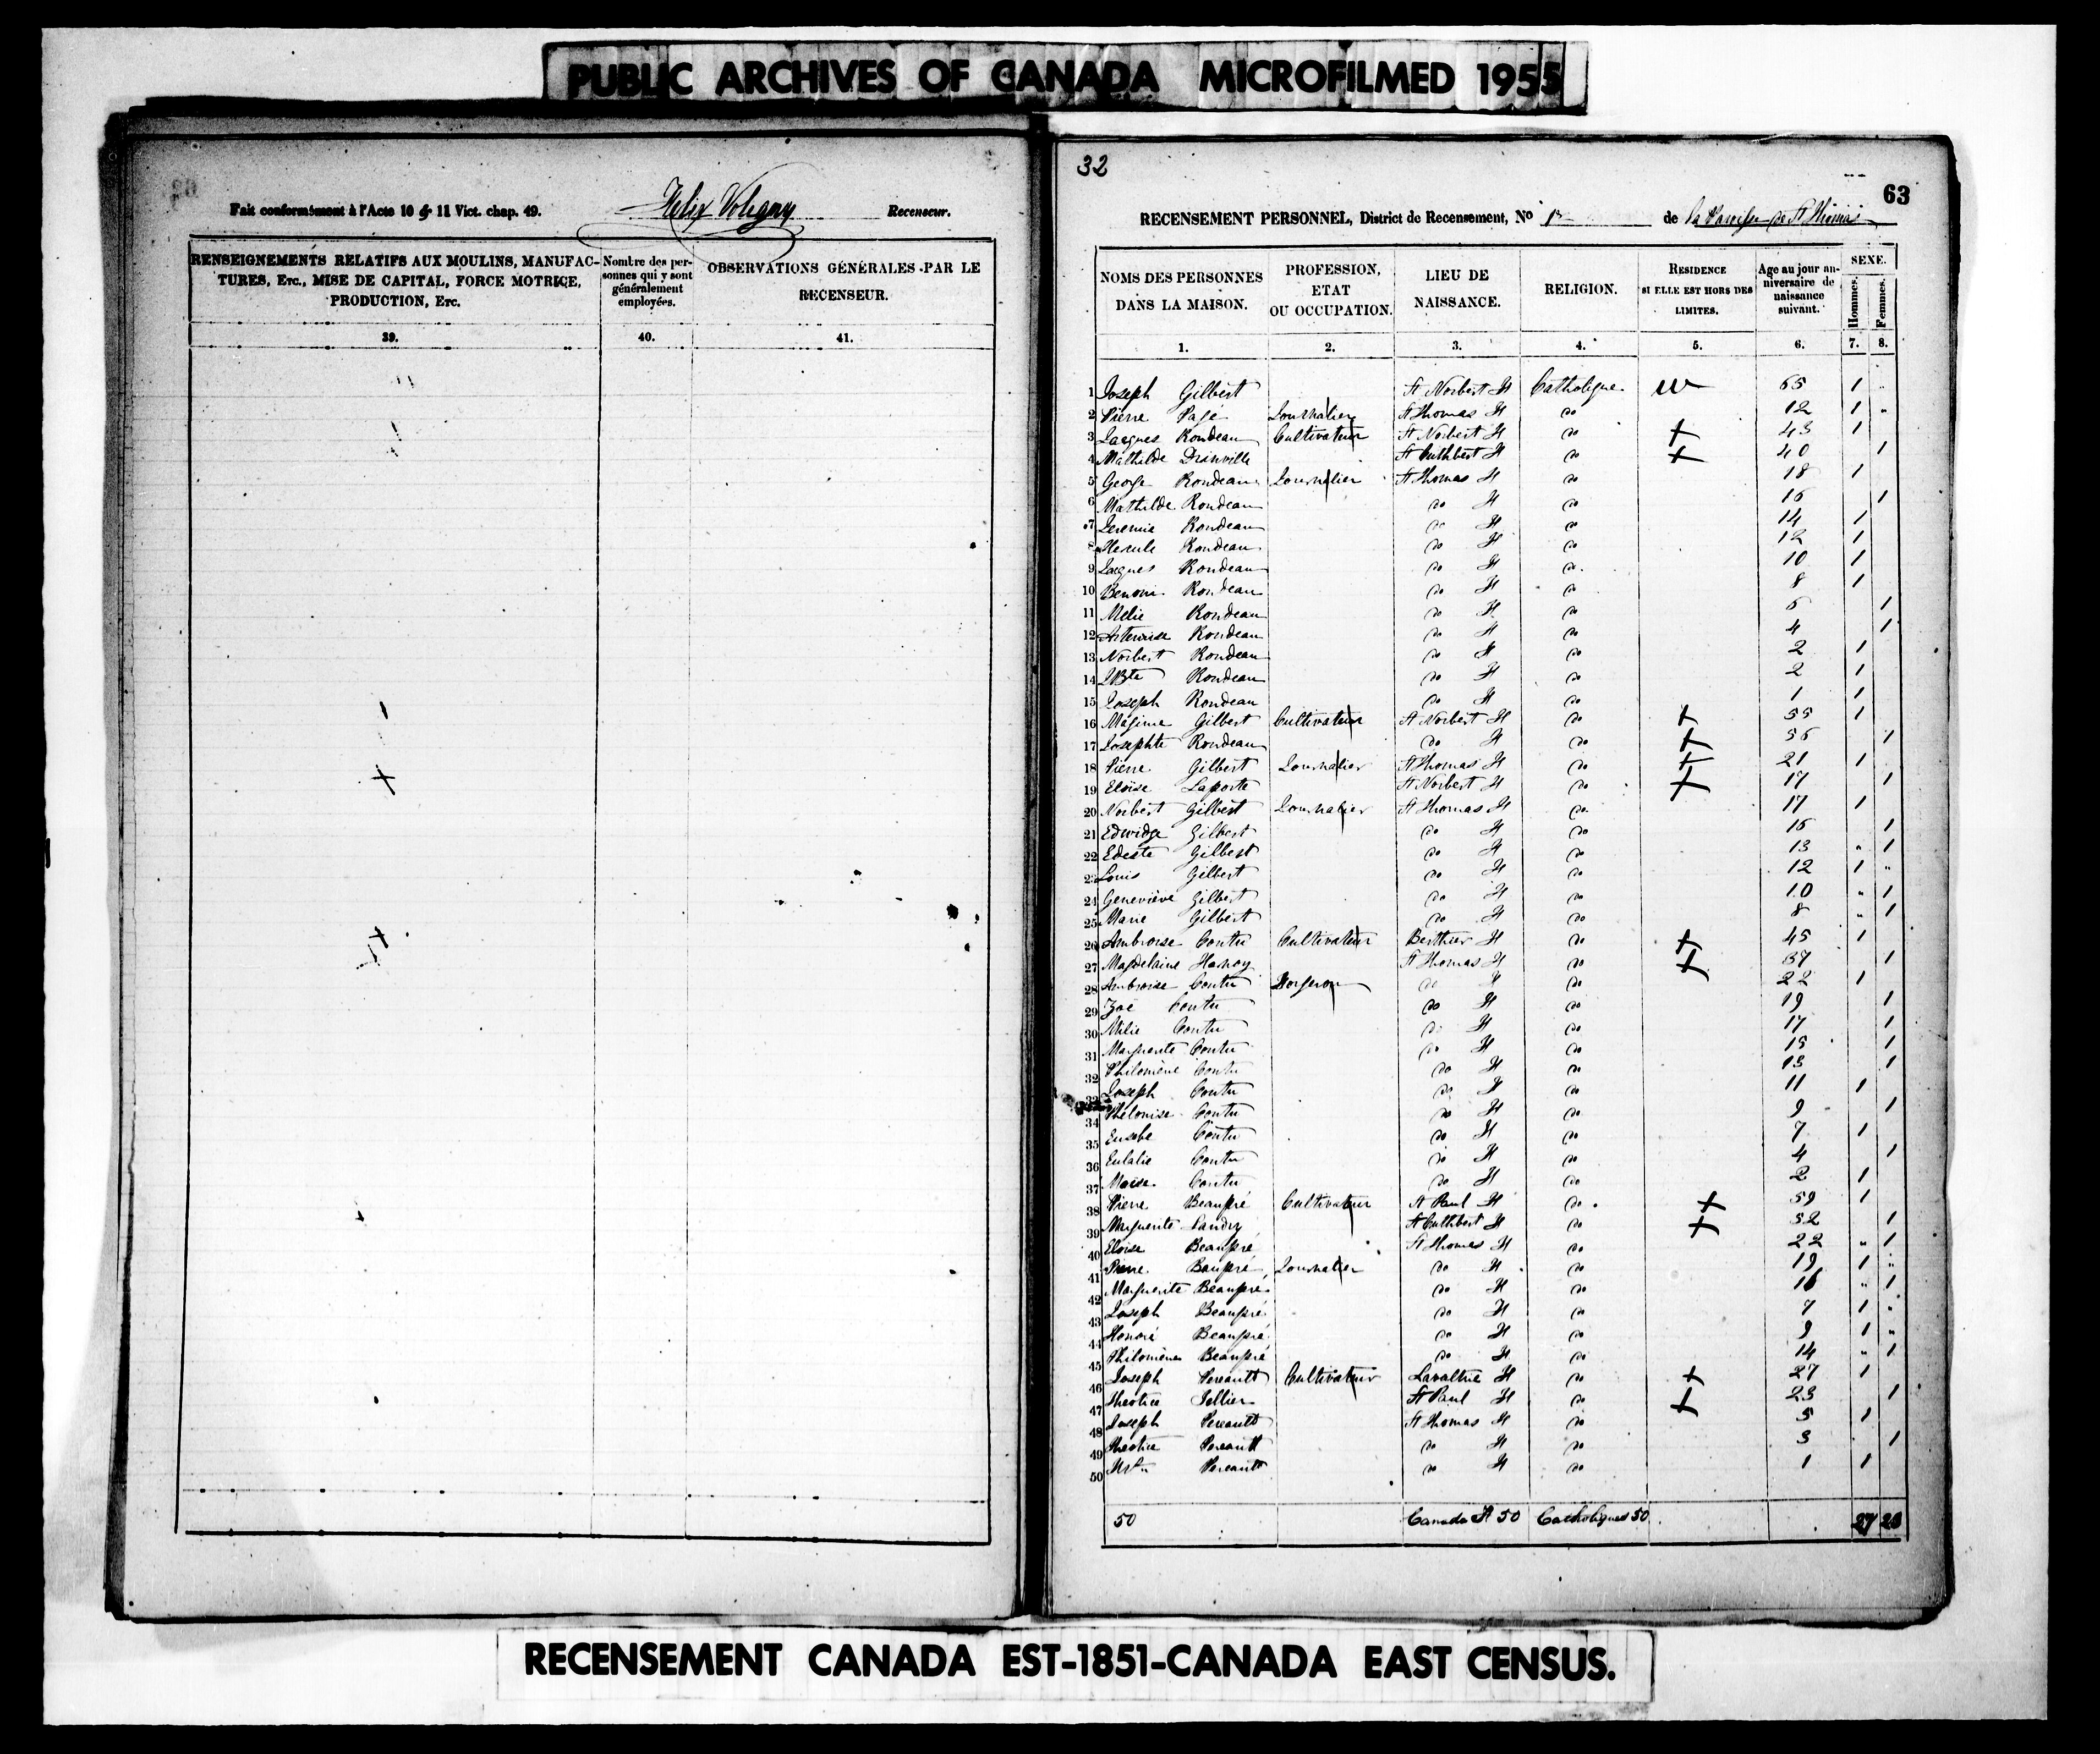 PUBLIC ARCHIVES OF CANADA MICROFILMED 1955
Fait conformément à l'Acte 10 & 11 Vict. chap. 49. Felix Voligny Recenseur.
RENSEIGNEMENTS RELATIFS AUX MOULINS, MANUFACTURES, Etc., MISE DE CAPITAL, FORCE MOTRICE, PRODUCTION, Etc.
Nombre des personnes qui y sont généralement employées.
OBSERVATIONS GÉNÉRALES PAR LE RECENSEUR.
39. 40. 41.
32
63
RECENSEMENT PERSONNEL, District de Recensement, No 1 de la Paroisse de St Thomas
NOMS DES PERSONNES DANS LA MAISON.
PROFESSION, ETAT OU OCCUPATION.
LIEU DE NAISSANCE.
RELIGION.
RESIDENCE SI ELLE EST HORS DES LIMITES.
Age au jour anniversaire de naissance suivant.
SEXE.
Hommes. Femmes.
1. 2. 3. 4. 5. 6. 7. 8.
1 Joseph Gilbert St Norbert H Catholique 65 1
2 Pierre Pagé Journalier St Thomas H do 12 1
3 Jacques Rondeau Cultivateur St Norbert H do + 43 1
4 Mathilde Drainville St Cuthbert H do + 40 1
5 George Rondeau Journalier St Thomas H do 18 1
6 Mathilde Rondeau do H do 16 1
7 Jeremie Rondeau do H do 14 1
8 Hercule Rondeau do H do 12 1
9 Jacques Rondeau do H do 10 1
10 Benoni Rondeau do H do 8 1
11 Mélie Rondeau do H do 6 1
12 Rondeau do H do 4 1
13 Norbert Rondeau do H do 2 1
14 JBte Rondeau do H do 2 1
15 Joseph Rondeau do H do 1 1
16 Magime Gilbert Cultivateur St Norbert H do + 55 1
17 Josephte Rondeau do H do + 56 1
18 Pierre Gilbert Journalier St Thomas H do + 21 1
19 Eloise Laporte St Norbert H do + 17 1
20 Norbert Gilbert Journalier St Thomas H do 17 1
21 Edwidge Gilbert do H do 15 1
22 Edeste Gilbert do H do 13 1
23 Louis Gilbert do H do 12 1
24 Geneviève Gilbert do H do 10 1
25 Marie Gilbert do H do 8 1
26 Ambroise Coutu Cultivateur Berthier H do + 45 1
27 Magdelaine Harnoy St Thomas H do + 37 1
28 Ambroise Coutu Forgeron do H do 22 1
29 Zoé Coutu do H do 19 1
30 Mélie Coutu do H do 17 1
31 Marguerite Coutu do H do 15 1
32 Philomène Coutu do H do 13 1
33 Joseph Coutu do H do 11 1
34 Coutu do H do 9 1
35 Eusebe Coutu do H do 7 1
36 Eulalie Coutu do H do 4 1
37 Moise Coutu do H do 2 1
38 Pierre Beaupré Cultivateur St Paul H do + 59 1
39 Marguerite Landry St Cuthbert H do + 52 1
40 Eloise Beaupré St Thomas H do 22 1
41 Pierre Baupré Journalier do H do 19 1
42 Marguerite Beaupré do H do 16 1
43 Joseph Beaupré do H do 7 1
44 Honoré Beaupré do H do 9 1
45 Philomène Beaupré do H do 14 1
46 Joseph Pereault Cultivateur Lavaltrie H do + 27 1
47 Theotice Tellier St Paul H do + 23 1
48 Joseph Pereault St Thomas H do 5 1
49 Theotice Pereault do H do 3 1
50 Pereault do H do 1 1
50 Canada H 50 Catholiques 50 27 23
RECENSEMENT CANADA EST-1851-CANADA EAST CENSUS.